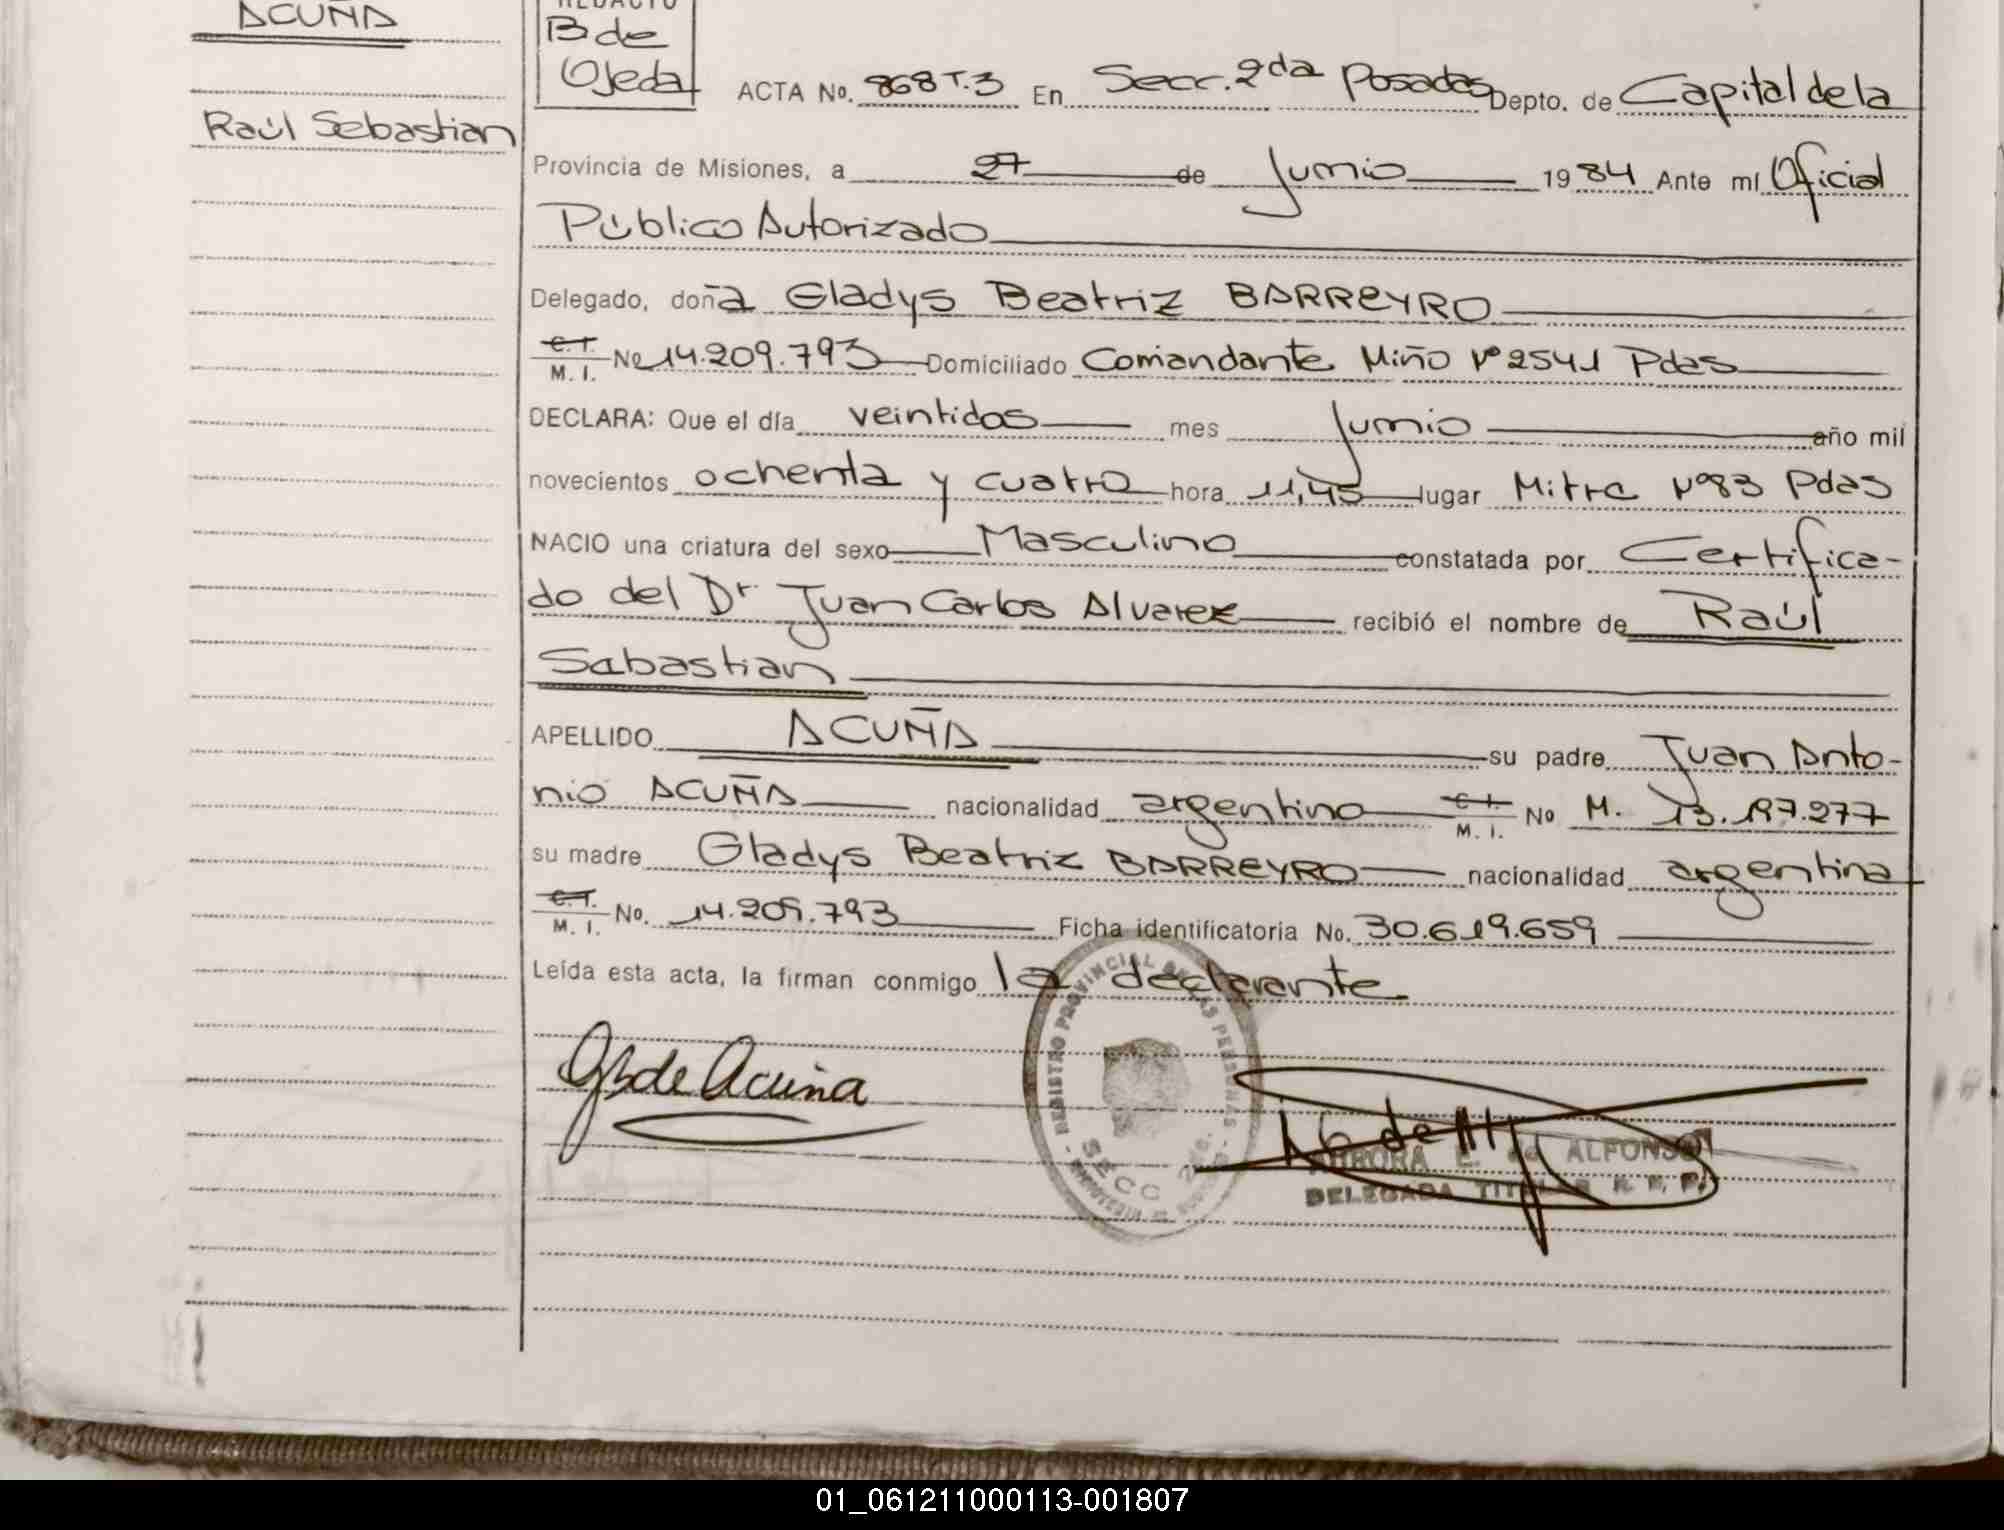 ACUÑA
Raúl Sebastian
REDACTO
B de
Ojeda
ACTA No. 868 T.3 En Secc. 2da Posadas Depto. de Capital de la
Provincia de Misiones, a 27 de Junio 1984 Ante mí Oficial
Público Autorizado
Delegado, doña Gladys Beatriz BARREYRO
C.I. M. I. No 14.209.793 Domiciliado Comandante Miño Nº 2541 Pdas
DECLARA: Que el día veintidos mes Junio año mil
novecientos ochenta y cuatro hora 11,45 lugar Mitre Nº83 Pdas
NACIO una criatura del sexo Masculino constatada por Certifica-
do del Dr Juan Carlos Alvarez recibió el nombre de Raúl
Sebastian
APELLIDO ACUÑA su padre Juan Anto-
nio ACUÑA nacionalidad argentino C.I. M. I. No M. 13.197.277
su madre Gladys Beatriz BARREYRO nacionalidad argentina
C.I. M. I. No. 14.209.793 Ficha identificatoria No. 30.619.659
Leída esta acta, la firman conmigo la declarante
GBde Acuña
REGISTRO PROVINCIAL DE LAS PERSONAS
SECC 2
ALFONSO
DELEGADA TITULAR R. P. P.
01_061211000113-001807